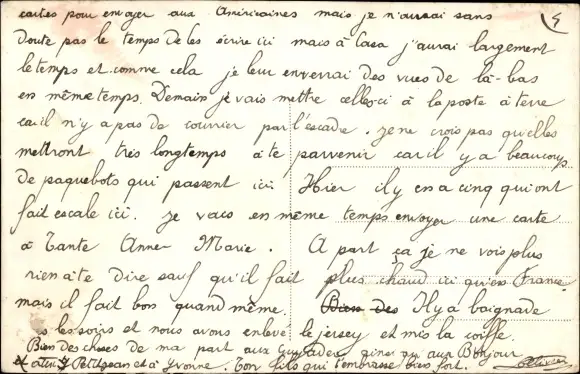 4
cartes pour envoyer aux Américaines mais je n'aurai sans
doute pas le temps de les écrire ici mais à Casa j'aurai largement
le temps et comme cela je leur enverrai des vues de là-bas
en même temps. Demain je vais mettre celles-ci à la poste à terre
car il n'y a pas de courrier par l'escadre. Je ne crois pas qu'elles
mettront très longtemps à te parvenir car il y a beaucoup
de paquebots qui passent ici. Hier il y en a cinq qui ont
fait escale ici. Je vais en même temps envoyer une carte
à Tante Anne Marie. A part ça je ne vois plus
rien à te dire sauf qu'il fait plus chaud ici qu'en France
mais il fait bon quand même. Bien des Il y a baignade
les soirs et nous avons enlevé le jersey et mis la coiffe.
Bien des choses de ma part aux ainsi qu'aux Bonjour
à Petitjean et à Yvonne. Ton fils qui t'embrasse bien fort.